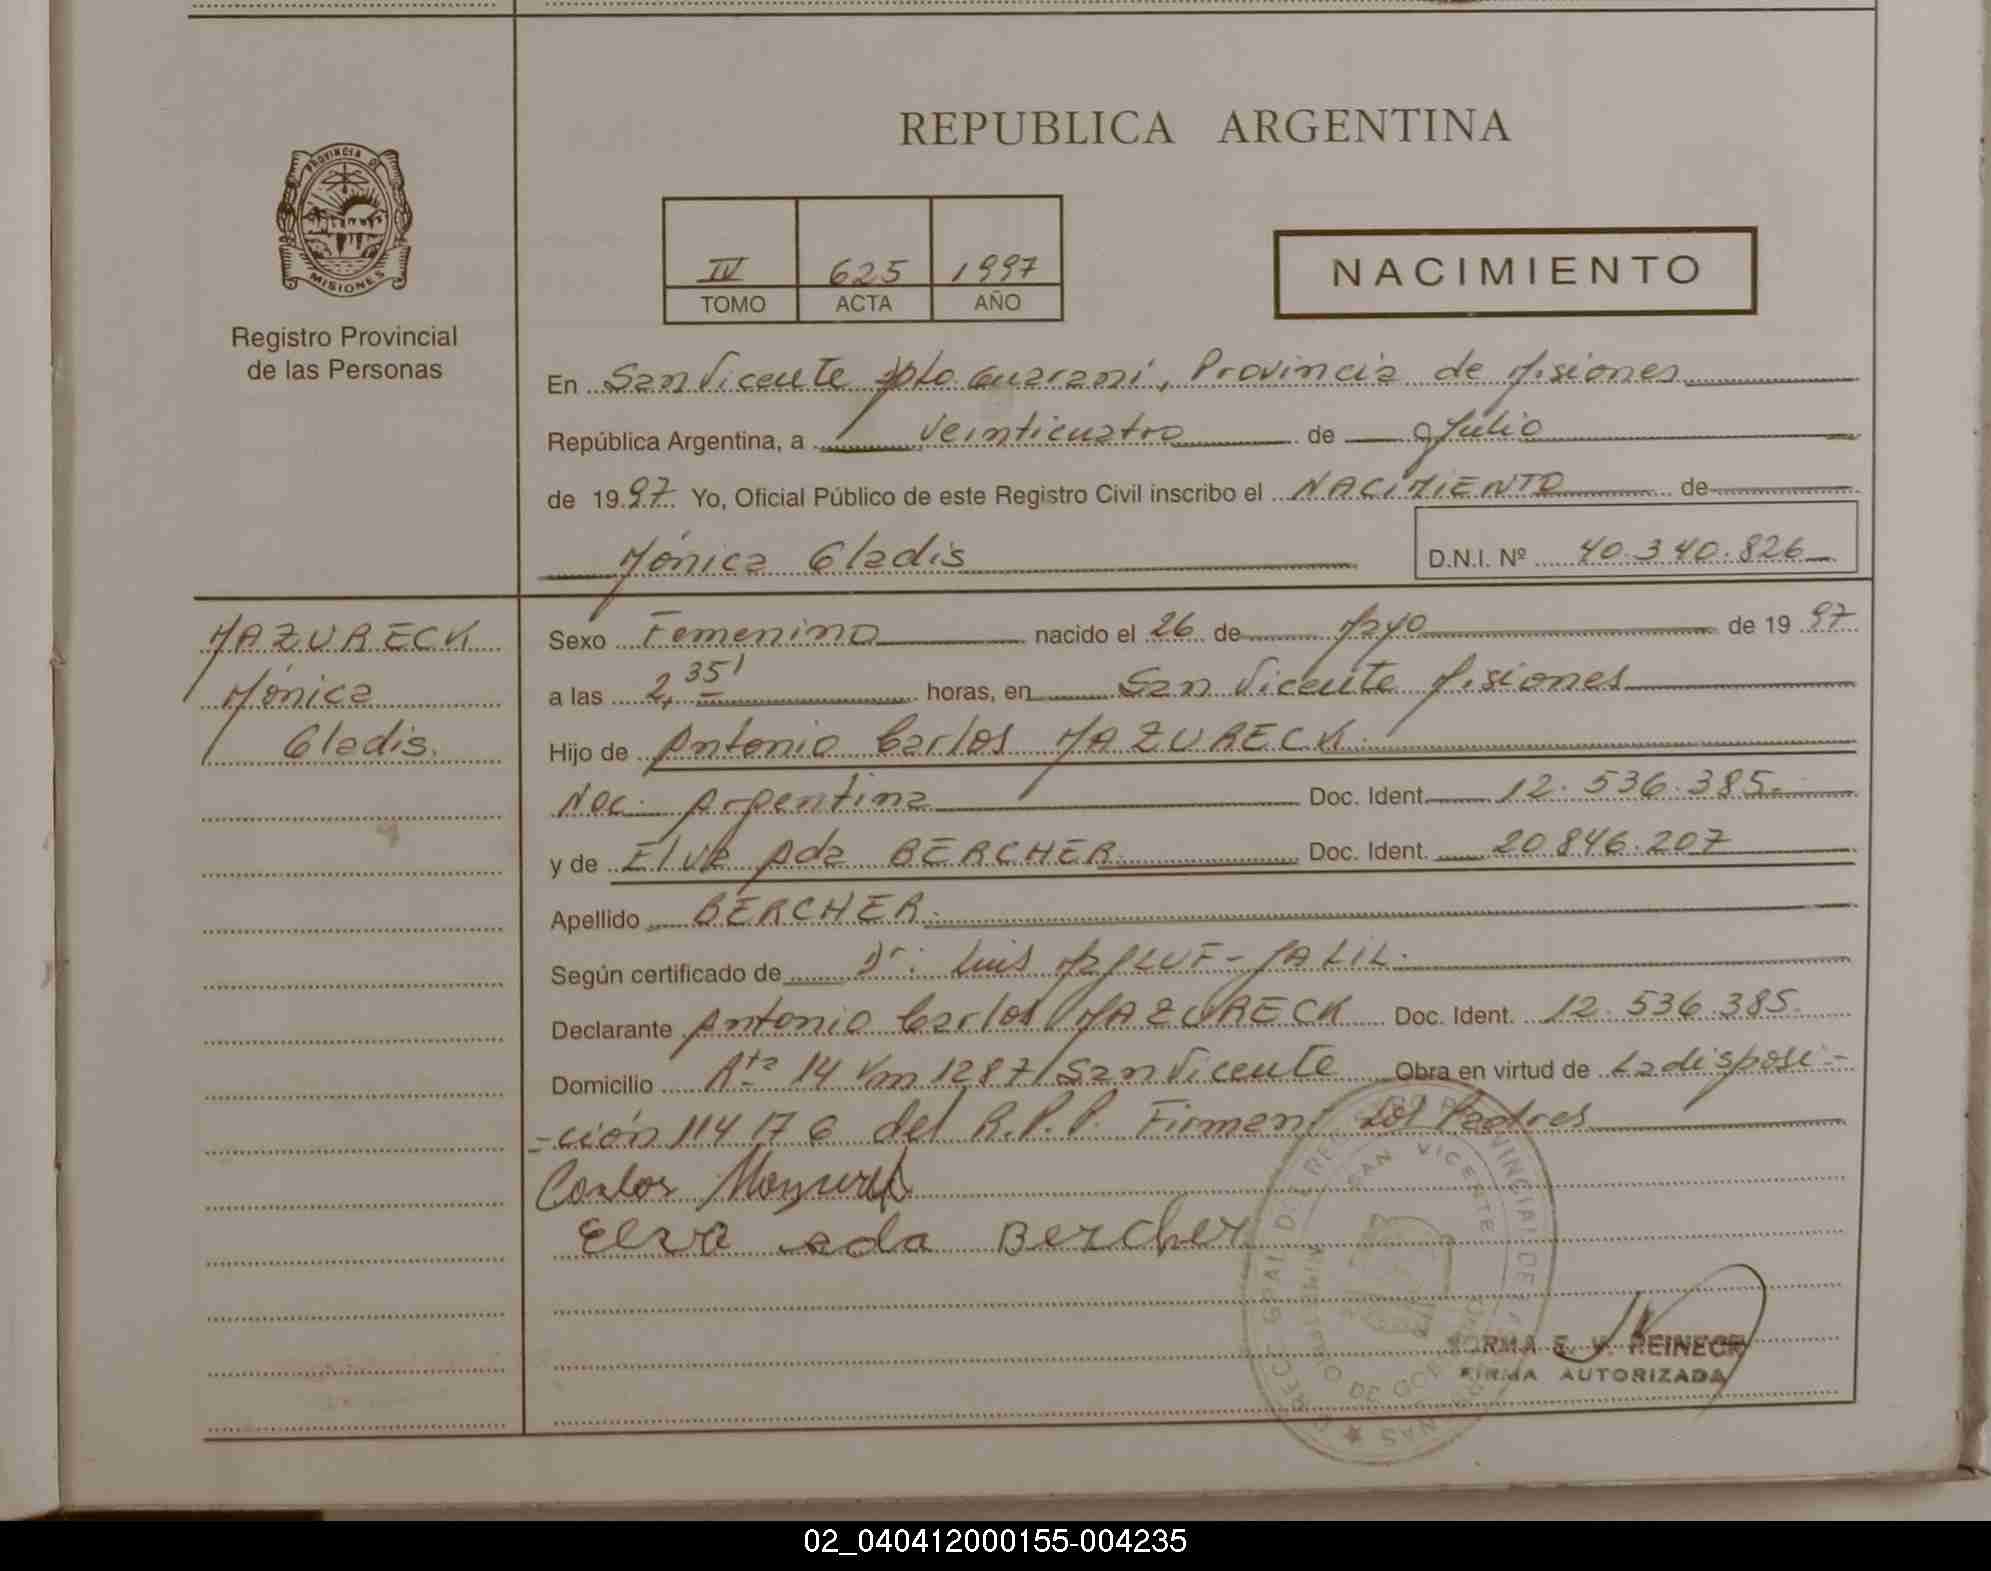 REPUBLICA ARGENTINA
PROVINCIA DE
MISIONES
Registro Provincial
de las Personas
IV 625 1997
TOMO ACTA AÑO
NACIMIENTO
En San Vicente Dpto Guarani, Provincia de Misiones
República Argentina, a veinticuatro de Julio
de 1997. Yo, Oficial Público de este Registro Civil inscribo el NACIMIENTO de
Mónica Gladis
D.N.I. Nº 40.340.826
MAZURECK
Mónica
Gladis.
Sexo Femenino nacido el 26 de Mayo de 1997
a las 2,35' horas, en San Vicente Misiones
Hijo de Antonio Carlos MAZURECK.
Nac. Argentina Doc. Ident. 12.536.385.-
y de Elva Ada BERCHER. Doc. Ident. 20.846.207
Apellido BERCHER.
Según certificado de Dr: Luis - JALIL.
Declarante Antonio Carlos MAZURECK Doc. Ident. 12.536.385.
Domicilio Rta 14 Km 1287 San Vicente Obra en virtud de La disposi-
-ción 114 del R.P.P. Firman Los Padres
Carlos
Elva ada Bercher
SAN VICENTE
NORMA E. V. REINECK
FIRMA AUTORIZADA
02_040412000155-004235